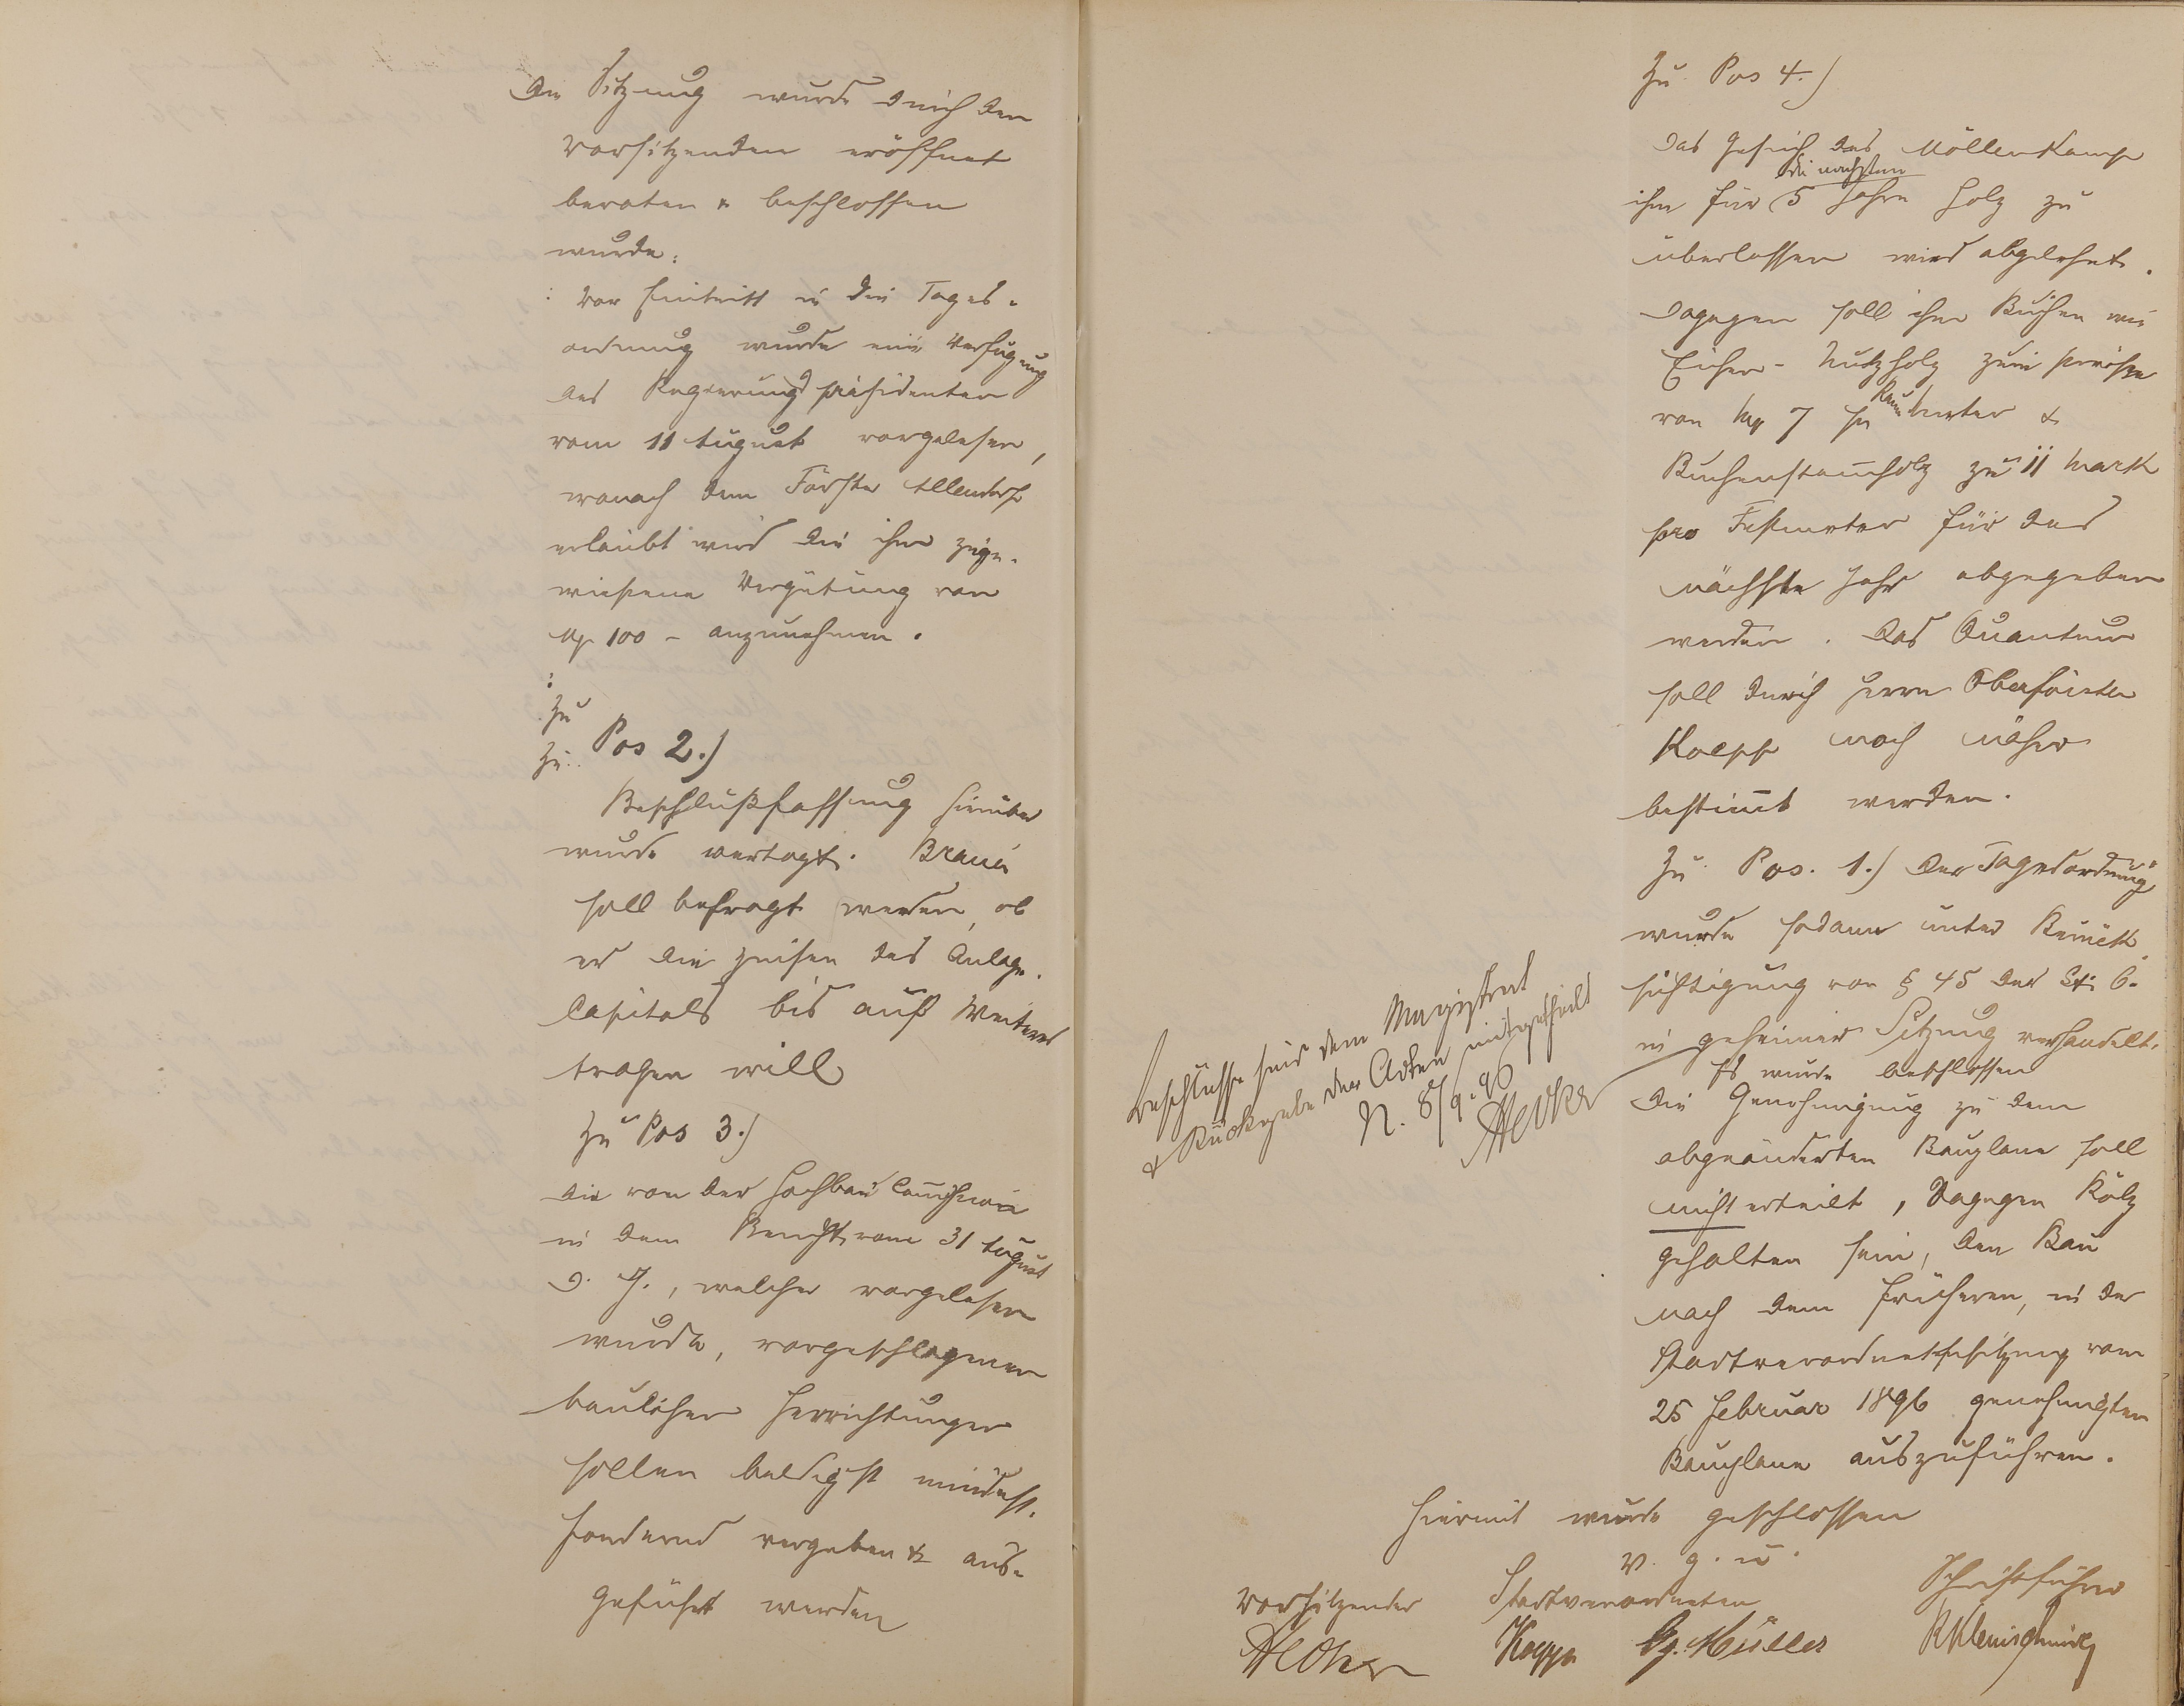 Die Sitzung wurde durch den
Vorsitzenden eröffnet
beraten & beschlossen
wurde:
Vor Eintritt in die Tages-
ordnung wurde eine Verfügung
des Regierungspräsidenten
vom 11 August vorgelesen,
wonach dem Förster Allendorf
erlaubt wird die ihm zuge-
wiesene Vergütung von
M 100 - anzunehmen.
Zu
Zu Pos 2.)
Beschlußfassung hierüber
wurde vertagt. Braun
soll befragt werden, ob
er die Zinsen des Anlage-
Capitals bis auf Weiteres
tragen will
Zu Pos 3.)
Die von der Hochbau Com̄ission
in dem Bericht vom 31 August
d. J., welcher vorgelesen
wurde, vorgeschlagenen
baulichen Herrichtungen
sollen baldigst mindest-
fordernd vergeben & aus-
geführt werden
Zu Pos 4.)
Das Gesuch des Möllenkamp
die nächsten
ihm für 5 Jahre Holz zu
überlassen wird abgelehnt.
Dagegen soll ihm Buchen wie
Eichen-Nutzholz zum Preise
von M 7 pr Raummeter &
Buchenstam̄holz zu 11 Mark
pro Festmeter für das
nächste Jahr abgegeben
werden. Das Quantum
soll durch Herrn Oberförster
Koepp noch näher
bestim̄t werden.
Zu Pos. 1.) der Tagesordnung
wurde sodann unter Berück-
sichtigung von § 45 der St. O.
in geheimer Sitzung verhandelt.
Es wurde beschlossen
Die Genehmigung zu dem
abgeänderten Bauplane soll
nicht erteilt, dagegen Kölz
gehalten sein, den Bau
nach dem früheren, in der
Stadtverordnetensitzung vom
25 Februar 1896 genehmigten
Bauplane auszuführen.
Hiermit wurde geschlossen
V. g. u.
Vorsitzender Stadtverordneten Schriftführer
Koepp Gg. Müller R Kleinschmidt
Beschlüsse sind dem Magistrat
& Rückgabe der Akten mitgetheilt
N. 8/9. 96